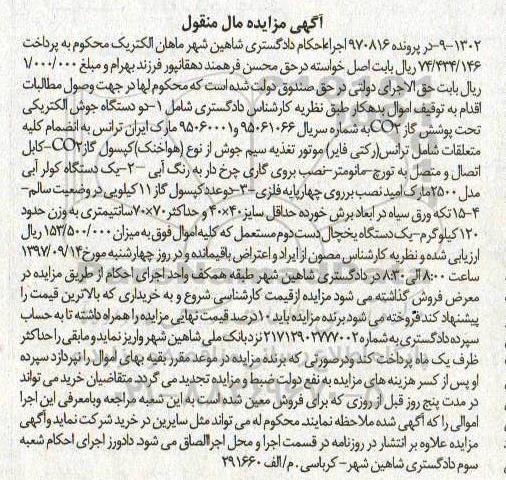 آگهی مزایده مال منقول
۹-۱۳۰۲-در پرونده ۹۷۰۸۱۶ اجرا احکام دادگستری شاهین شهر ماهان الکتریک محکوم به پرداخت
۷۴/۴۳۴/۱۴۶ ریال بابت اصل خواسته در حق محسن فرهمند دهقانپور فرزند بهرام و مبلغ ۱/۰۰۰/۰۰۰
ریال بابت حق الاجرای دولتی در حق صندوق دولت شده است که محکوم لها در جهت وصول مطالبات
اقدام به توقیف اموال بدهکار طبق نظریه کارشناس دادگستری شامل ۱-دو دستگاه جوش الکتریکی
تحت پوشش گاز CO۲ به شماره سریال ۹۵۰۶۱۰۶۶ و ۹۵۰۶۰۰۰۱ مارک ایران ترانس به انضمام کلیه
متعلقات شامل ترانس(رکتی فایر) موتور تغذیه سیم جوش از نوع (هواخنک)کپسول گاز CO۲-کابل
اتصال و متصل به تورچ-مانومتر-نصب بروی گاری چرخ دار به رنگ آبی -۲-یک دستگاه کولر آبی
مدل ۲۵۰۰ مارک امید نصب بر روی چهارپایه فلزی-۳-دو عدد کپسول گاز ۱۱ کیلویی در وضعیت سالم-
۴-۱۵ تکه ورق سیاه در ابعاد برش خورده حداقل سایز ۴۰×۴۰ و حداکثر ۷۰×۷۰ سانتیمتری به وزن حدود
۱۲۰ کیلوگرم-یک دستگاه یخچال دست دوم مستعمل که کلیه اموال فوق به میزان ۱۵۳/۵۰۰/۰۰۰ ریال
ارزیابی شده و نظریه کارشناس مصون از ایراد و اعتراض باقیمانده و در روز چهارشنبه مورخ ۱۳۹۷/۰۹/۱۴
ساعت ۸:۰۰ الی ۸:۳۰ در دادگستری شاهین شهر طبقه همکف واحد اجرای احکام از طریق مزایده در
معرض فروش گذاشته می شود مزایده از قیمت کارشناسی شروع و به خریداری که بالاترین قیمت را
پیشنهاد کند فروخته می شود برنده مزایده باید ۱۰ درصد قیمت نهایی مزایده را همراه داشته تا به حساب
سپرده دادگستری به شماره ۲۱۷۱۲۹۰۲۷۷۰۰۲ نزد بانک ملی شاهین شهر واریز نماید و مابقی را حداکثر
ظرف یک ماه پرداخت کند و در صورتی که برنده مزایده در موعد مقرر بقیه بهای اموال را نپردازد سپرده
او پس از کسر هزینه های مزایده به نفع دولت ضبط و مزایده تجدید می گردد. متقاضیان خرید می تواند
در مدت پنج روز قبل از روزی که برای فروش معین شده است به این شعبه مراجعه و با معرفی این اجرا
اموالی را که آگهی شده ملاحظه نمایند. محکوم له می تواند مثل سایرین در خرید شرکت نماید و آگهی
مزایده علاوه بر انتشار در روزنامه در قسمت اجرا و محل اجرا الصاق می شود. دادورز اجرای احکام شعبه
سوم دادگستری شاهین شهر-کرباسی. م/الف ۲۹۱۶۶۰